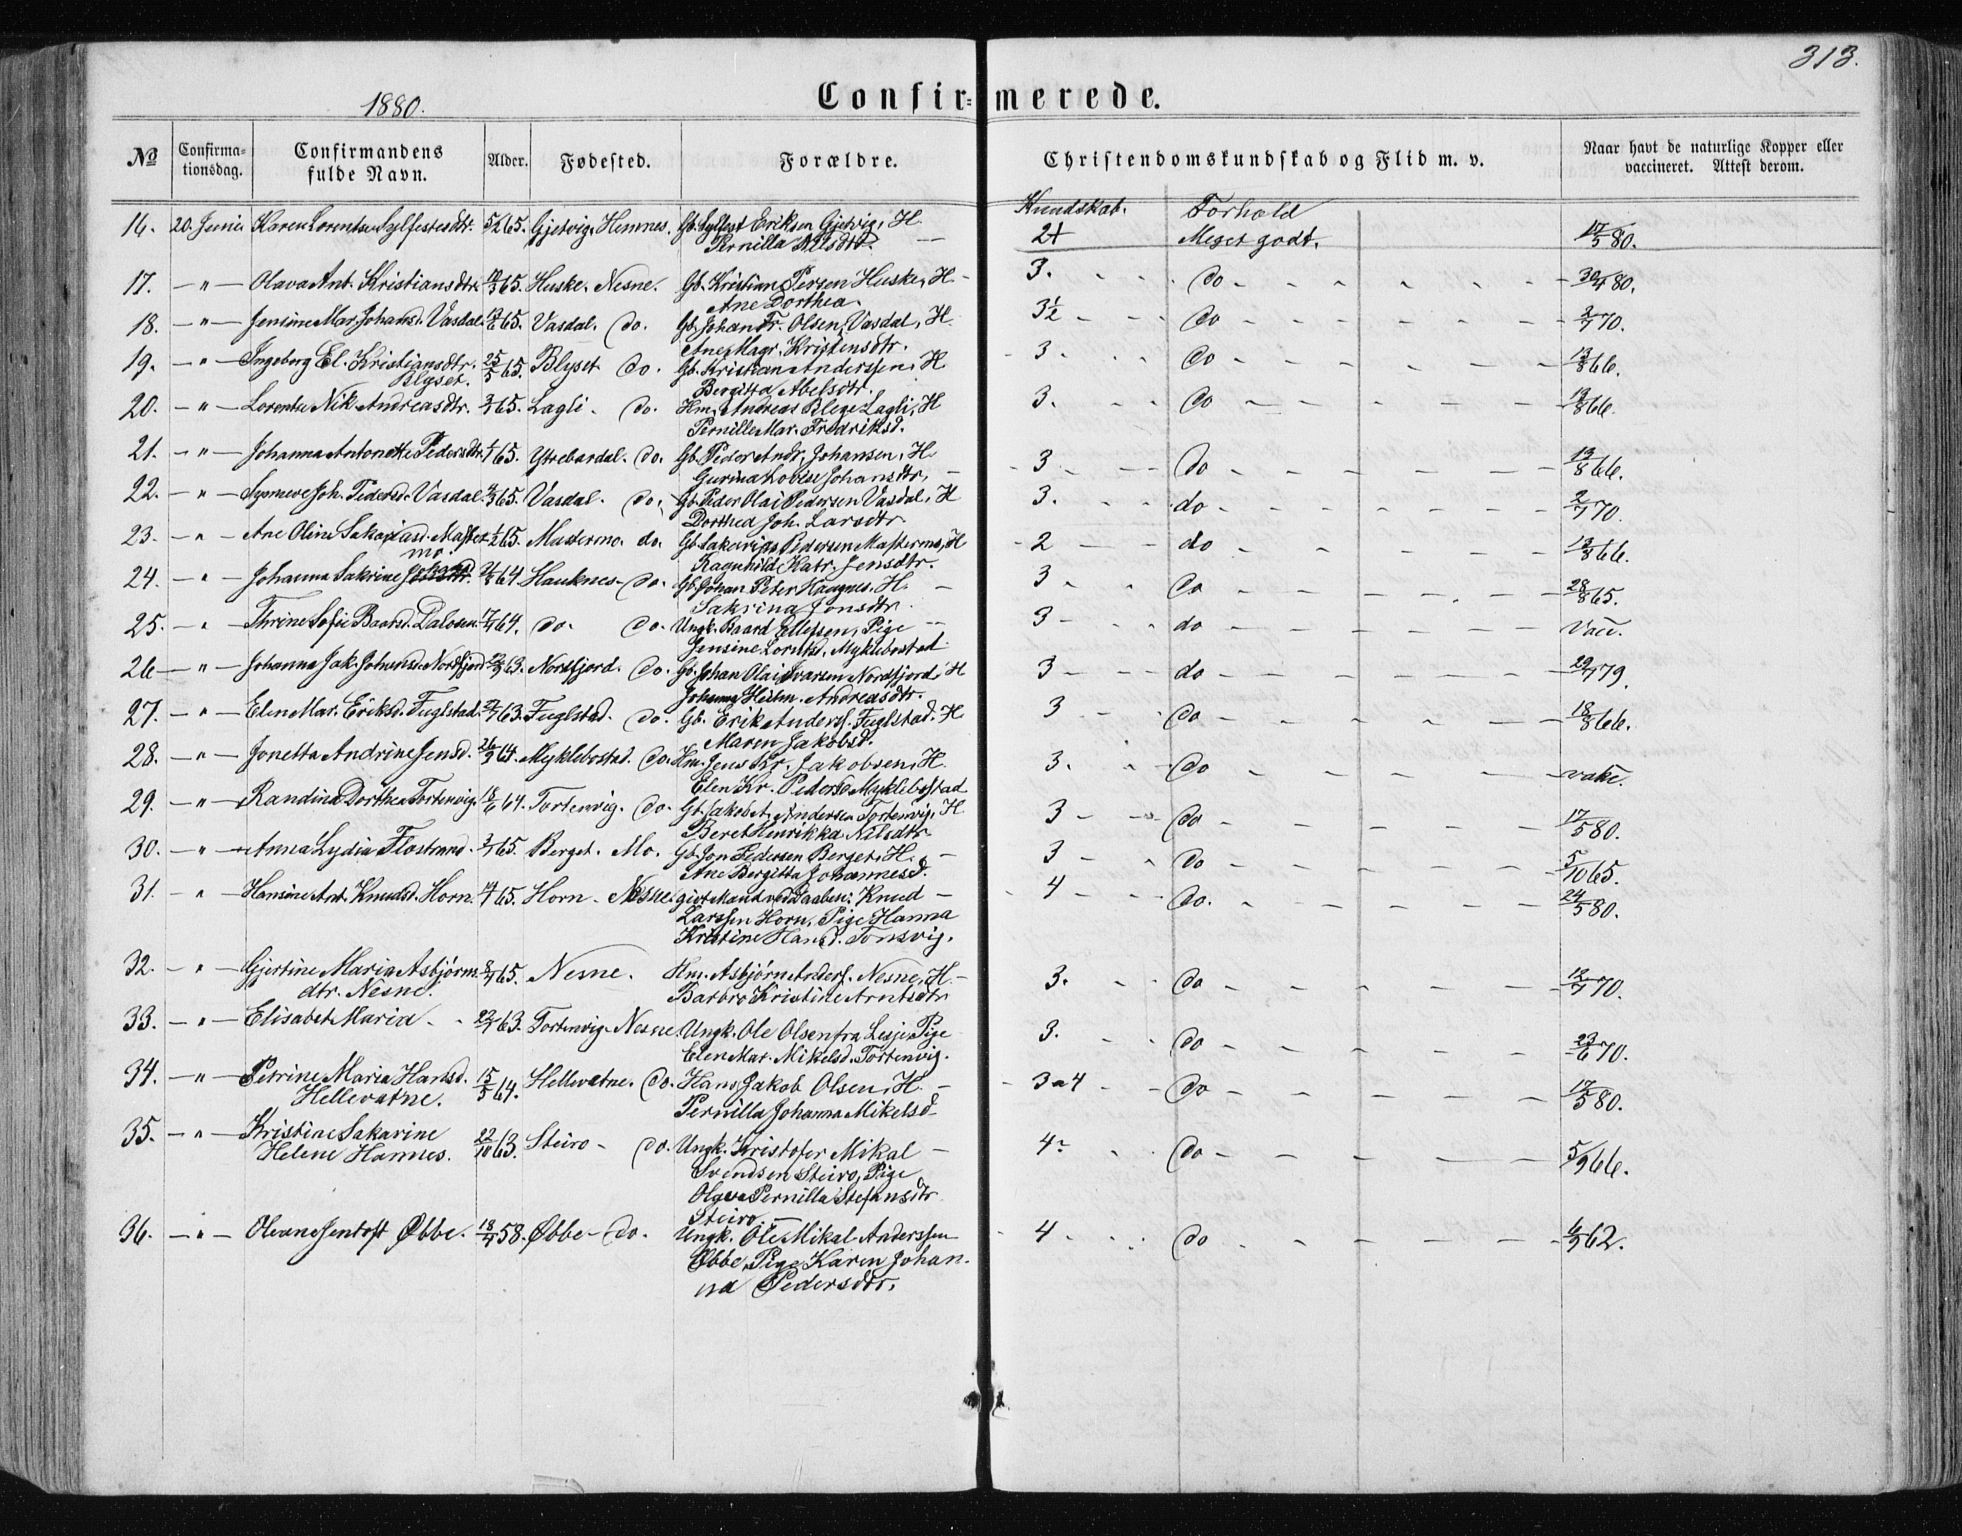 313.
1880.
Confir=merede.
№ Confirma-tionsdag. Confirmandens fulde Navn. Alder. Fødested. Forældre. Christendomskundskab og Flid m. v. Naar havt de naturlige Kopper eller vaccineret. Attest derom.
Kundskab. Forhold
16. 20. Juni Karen Lorentse Sylfestesdtr. 5/2 65. Gjetvig, Hemnes. Gb. Sylfest Eriksen Gjetvig, H. 2+ Meget godt. 17/5 80.
Pernilla Nilsdtr.
17. — " — Olava Ant. Kristiansdtr. 65. Huske. Nesne. Gb. Kristian Persen Huske, H. 3. do 30/4 80.
Ane Dorthea.
18. — " — Jensine Mar. Johansd. Vasdal. 65. Vasdal. do. Gb. Johan Fr. Olsen, Vasdal, H. 3½ do 2/7 70.
Ane Magr. Kristensdtr.
19. — " — Ingeborg El. Kristiansdtr. 25/5 65. Blyset do. Gb. Kristian Anderssen, H. 3. do 13/8 66.
Blyset. Bergitta Abelsdtr.
20. — " — Lorentse Nik. Andreasdtr. 65. Lagli. do. Hm. Andreas Lagli, H 3. do 13/8 66.
Pernille Mar. Fredriksd.
21. — " — Johanna Antonette Pedersdtr. 65. Ytrebardal. do. Gb. Peder Andr. Johansen, H. 3 do 13/8 66.
Gurina Lovise Johansdtr.
22. — " — Synneve Joh. Pedersd. Vasdal. 65. Vasdal. do. Gb. Peder Olai Pedersen Vasdal, H 3. do 2/7 70.
Dorthea Joh. Larsdtr.
23. — " — Ane Oline Sakariasd. Master- 65. Mastermo. do. Gb. Sakarias Pedersen Mastermo, H 2 do 13/8 66.
mo. Ragnhild Katr. Jensdtr.
24. — " — Johanna Sakrine 64 Hauknes do. Gb. Johan Peter Haugnes, H. 3 do 28/8 65.
Sakrina Jonsdtr.
25. — " — Thrine Sofie Baardsd. Dalosen. 64. do. do. Ungk. Baard Ellefsen, Pige 3 do Vacc.
Jensine Lorntsd. Myklebostad
26 — " — Johanna Jak. Johansd. Nordfjord 63. Nordfjord. do. Gb. Johan Olai Ivarsen Nordfjord, H 3 do 29/4 79.
Johanna Heilm. Andreasdtr.
27. — " — Elen Mar. Eriksd. Fuglstad. 63. Fuglstad. do. Gb. Erik Anders. Fuglstad. H. 3 do 18/8 66.
Maren Jakobsd.
28. — " — Jonetta Andrine Jensd. 64. Myklebostad. do. Hm. Jens Kr. Jakobsen, H. 3. do vakc.
Elen Kr. Pedersd. Myklebostad
29. — " — Randina Dorthea Tortenvig. 18/6 64. Tortenvig. do. Gb. Jakob A. Andersen Tortenvig, H 3 do 17/5 80.
Beret Henrikka Nilsdtr
30. — " — Anna Lydia Flostrand. 65. Berget. Mo. Gb. Jon Pedersen Berget, H. 3 do 5/10 65.
Ane Bergitta Johannesd.
31. " — Hansine Ant. Knudsd. Horn. 65. Horn. Nesne. gift Mand ved Daaben: Knud 4 do. 24/5 80.
Larssen Horn, Pige Hanna
Kristine Hansd. Tonsvig.
32. — " — Gjertine Maria Asbjørns- 65. Nesne. Hm. Asbjørn Anders. Nesne, H. 3. do 12/7 70.
dtr. Nesne. Barbro Kristine Arntsdtr
33. — " — Elisabet Maria 63. Tortenvig. Nesne Ungk. Ole Olsen fra Lesje, Pige 3. do 23/6 70.
Elen Mar. Mikelsd. Tortenvig.
34. — " — Petrine Maria Hansd. 15/5 64. Hellevatne. do. Hans Jakob Olsen, H. 3 a 4 do 17/5 80.
Hellevatne. Pernilla Johanna Mikelsd
35. — " — Kristine Sakarine 22/10 63. Steiro do. Ungk. Kristofer Mikal 4 do 5/9 66.
Helene Hannes. Svendsen Steiro, Pige
Olava Pernilla Stefansdtr
Steiro.
36. — " — Olevine Jentoft Øbbe. 18/7 58. Øbbe do. Ungk. Ole Mikal Anderssen 4 do 6/9 62.
Øbbe, Pige Karen Johan-
na Pedersdtr.